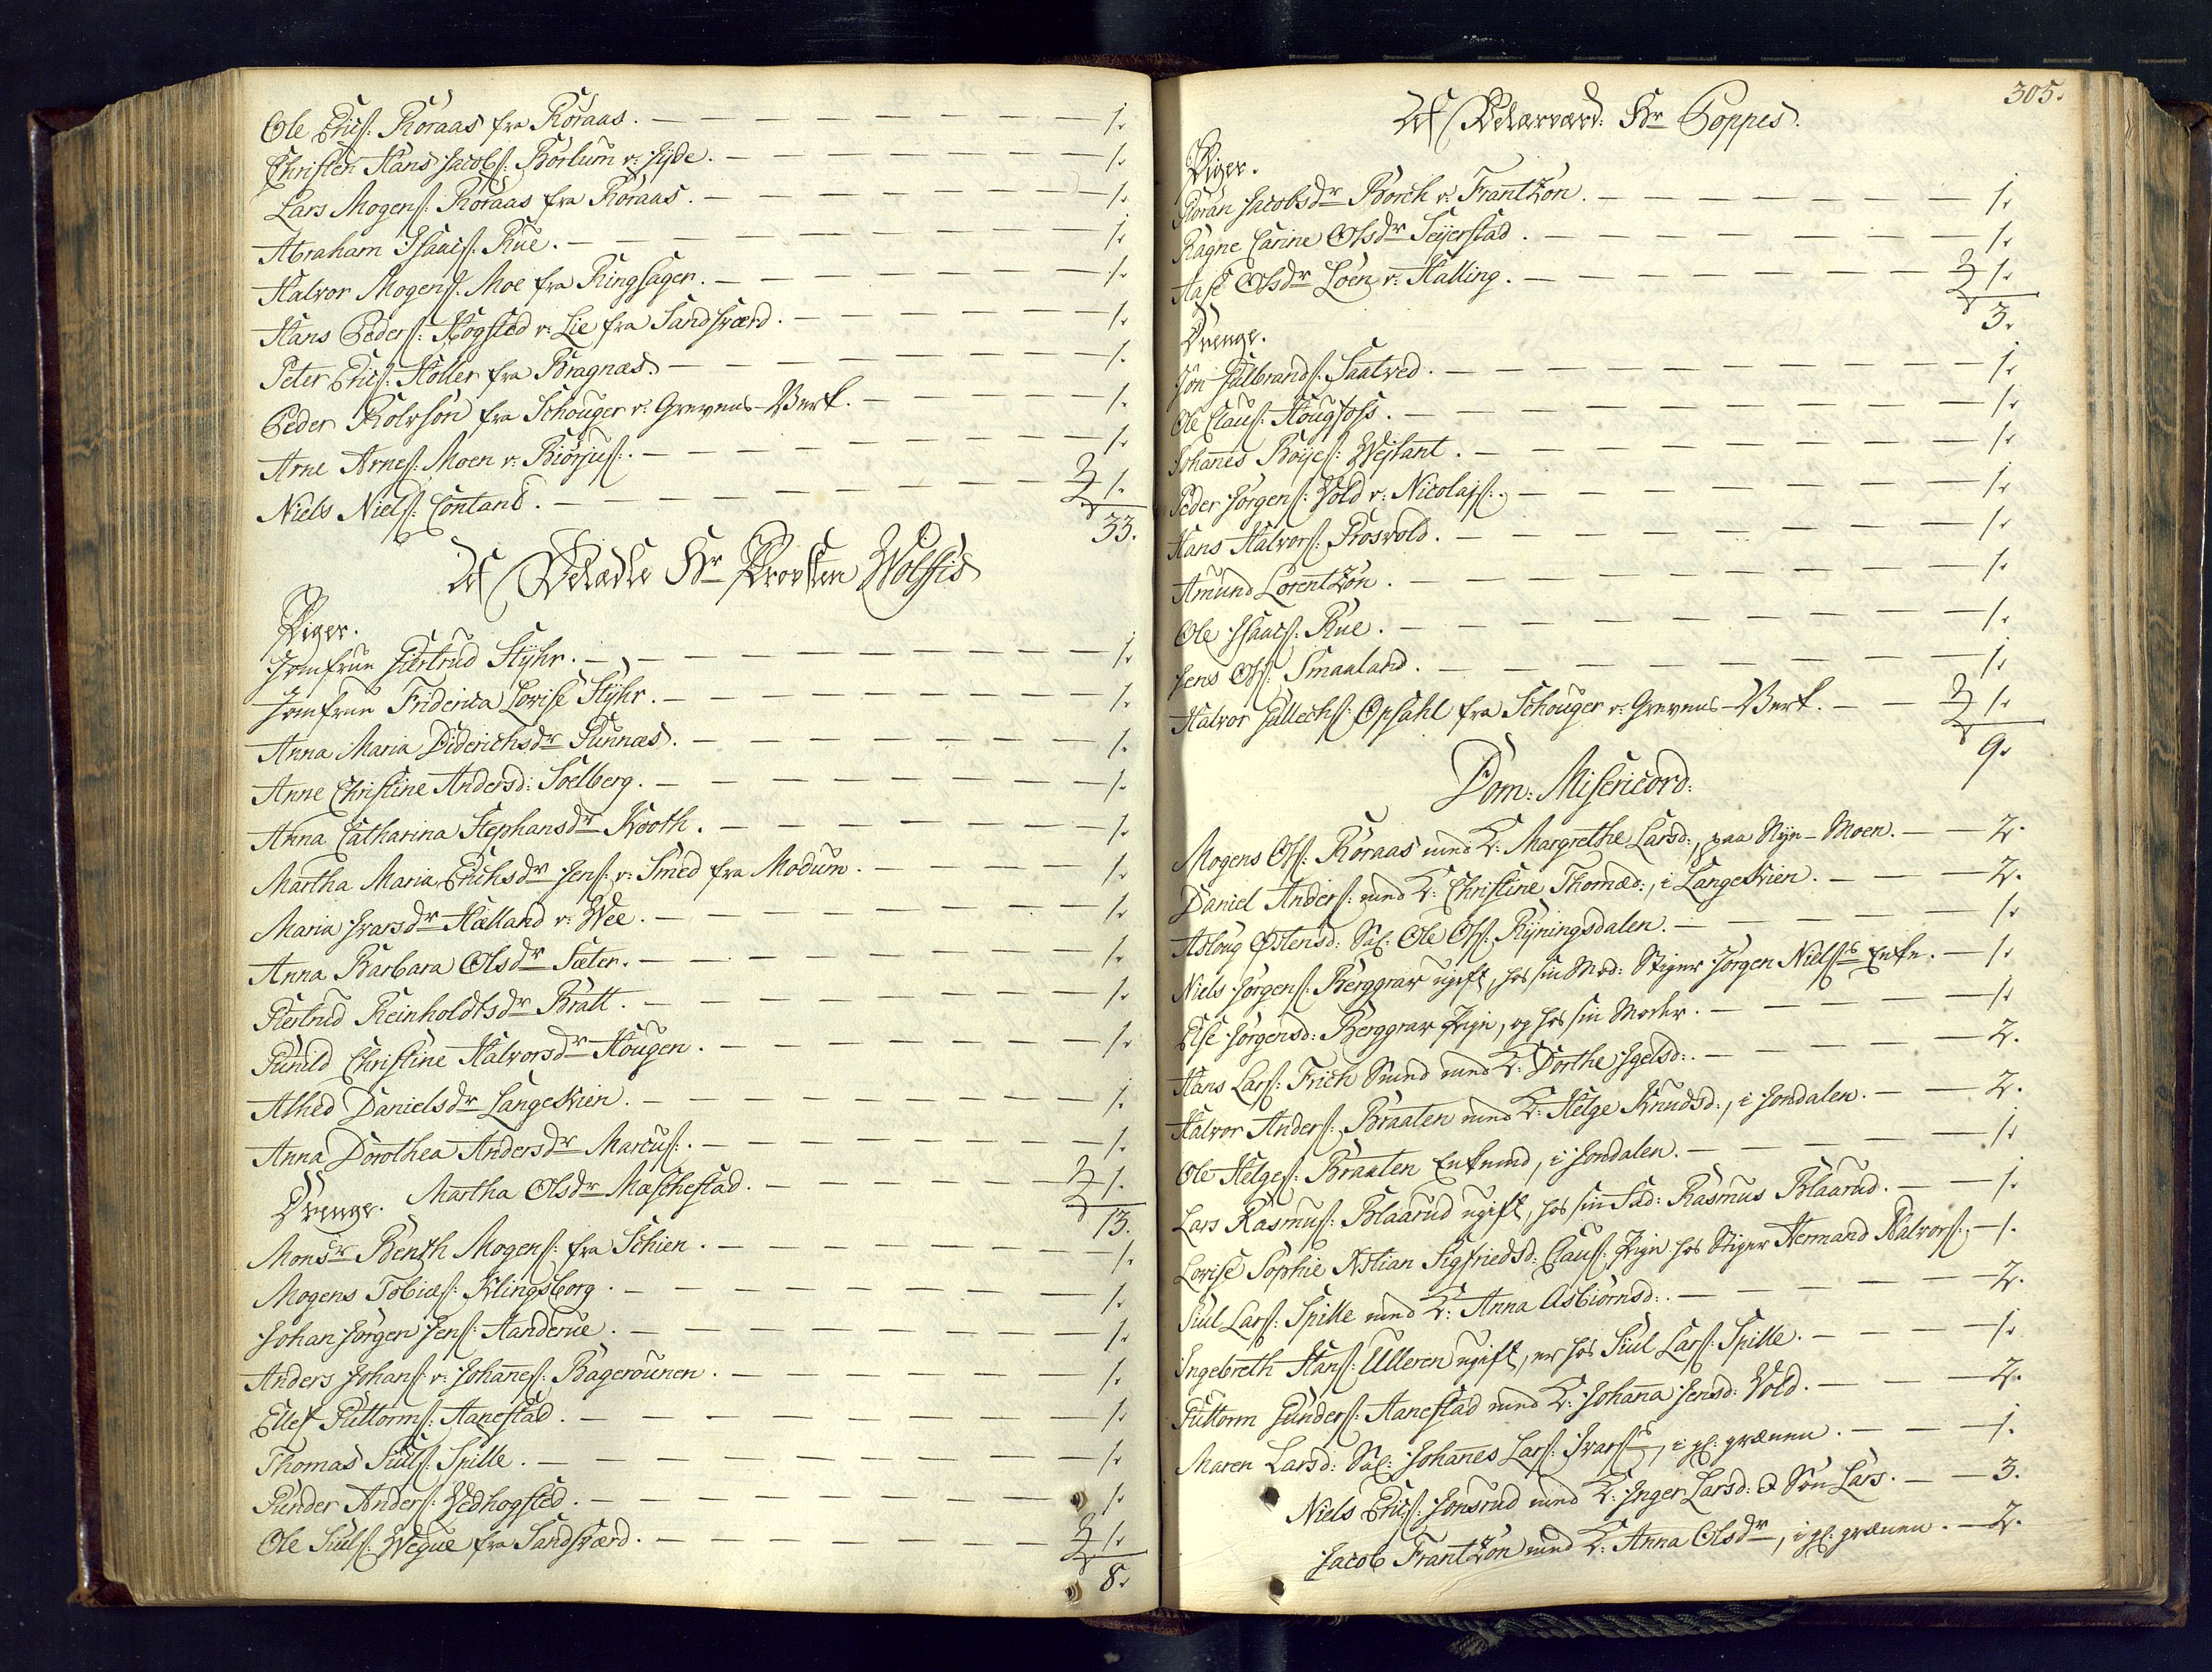 Ole Erics: Röraas fra Röraas. — 1.
Christen Hans Jacobs: Börlum v: Hÿde. — 1.
Lars Mogens: Röraas fra Röraas. — 1.
Abraham Isaacs: Rue. — 1.
Halvor Mogens: Moe fra Ringsager. — 1.
Hans Peders: Högsted v: Lie fra Sandsværd. — 1.
Peter Erics: Höller fra Bragnæs. — 1.
Peder Rolvsön fra Schouger v: Grevens-Verk. — 1.
Arne Arnes: Moen v: Biörjus:. — 1.
Niels Niels: Contand. — 1.
33.
Af Velædle Hr Provsten Wolffis
Piger.
Jomfrue Giertrud Stÿhr. — 1.
Jomfrue Friderica Lovise Stÿhr. — 1.
Anna Maria Diderichsdr Gunnæs. — 1.
Anne Christine Andersd: Soelberg. — 1.
Anna Catharina Stephansdr Krooth. — 1.
Martha Maria Erichsdr Jens: v: Smed fra Modum. — 1.
Maria Ivarsdr Hælland v: Wee. — 1.
Anna Barbara Olsdr Sæter. — 1.
Giertrud Reinholdtsdr Bratt. — 1.
Gunild Christine Halvorsdr Hougen. — 1.
Alhed Danielsdr Langekrien. — 1.
Anna Dorothea Andersdr Marcus:. — 1.
Drenge. Martha Olsdr Maschestad. — 1.
13.
Monsr Benth Mogens: fra Schien. — 1.
Mogens Tobiæs: Klingsborg. — 1.
Johan Jörgen Jens: Aanderue. — 1.
Anders Johans: v: Johañes: Bagerounen. — 1.
Ellef Guttorms: Aanestad. — 1.
Thomas Siuls: Spille. — 1.
Gunder Anders: Vedhogsted. — 1.
Ole Siuls: Wegue fra Sandsværd. — 1.
8.
305.
Af Velærværd: Hr Poppes.
Piger.
Göran Jacobsdr Borch v: Frantzön. — 1.
Ragne Carine Olsdr Seijerstad. — 1.
Aase Olsdr Loen v: Halling. — 1.
3.
Drenge.
Jon Gulbrands: Saatved. — 1.
Ole Claus: Hougfoss. — 1.
Johañes Böÿes: Wejlant. — 1.
Peder Jörgens: Vold v: Nicolajs:. — 1.
Hans Halvors: Rosvold. — 1.
Amund Lorentzön. — 1.
Ole Isaacs: Rue. — 1.
Jens Ols: Smaaland. — 1.
Halvor Gullechs: Opsahl fra Schouger v: Grevens-Verk. — 1.
9.
Dom: Misericord:
Mogens Ols: Röraas med K: Margrethe Larsd:, paa Nÿe-Moen. — 2.
Daniel Anders: med K: Christine Thomæd:, i Langekrien. — 2.
Asloug Østensd: Sal: Ole Ols: Rÿningsdalen. — 1.
Niels Jörgens: Berggrav ugift, hos sin Mod: Stiger Jörgen Nielss Enke. — 1.
Else Jörgensd: Berggrav Pige, og hos sin Moder. — 1.
Hans Lars: Frich Smed med K: Dorthe Igelsd:. — 2.
Halvor Anders: Braaten med K: Helge Knudsd:, i Jondalen. — 2.
Ole Helges: Braaten Enkemd, i Jondalen. — 1.
Lars Rasmus: Blaarud ugift, hos sin Fad: Rasmus Blaarud. — 1.
Lovise Sophie Sigfriedsd: Claus: Pige hos Stiger Hermand Halvors:. — 1.
Siul Lars: Spille med K: Anna Asbiörnsd:. — 2.
Ingebreth Hans: Ulleren ugift, er hos Siul Lars: Spille. — 1.
Guttorm Gunders: Aanestad med K: Johaña Jensd: Vold. — 2.
Maren Larsd: Sal: Johañes Lars: Ivarss, i gl: grænen. — 1.
Niels Erics: Jonsrud med K: Inger Larsd: & Sön Lars. — 3.
Jacob Frantzön med K: Anna Olsdr, i gl: grænen. — 2.